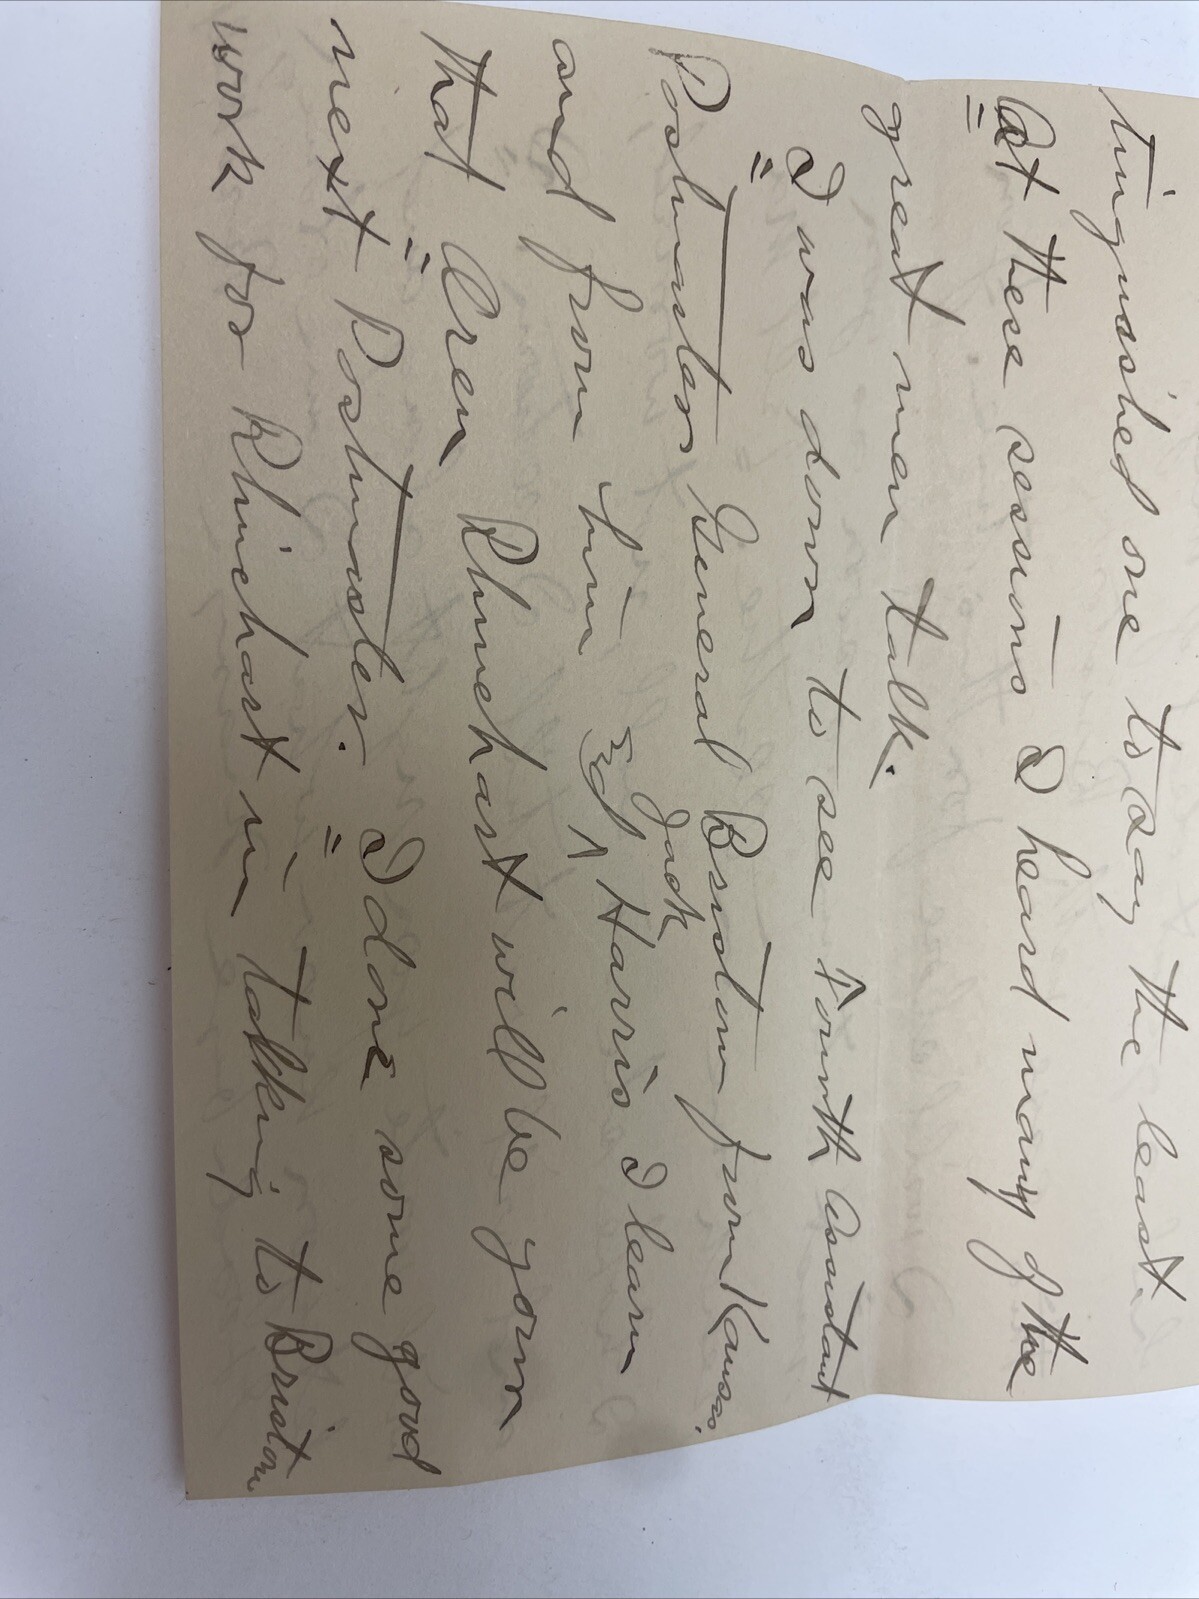 tinguished one to say the least.
At these sessions I heard many of the
great men talk.
I was down to see Fourth Assistant
Postmaster General Bristow from Kansas,
and from him Jack Harris I learn
that Oren Rhinehart will be your
next Postmaster. I done some good
work for Rhinehart in talking to Bristow